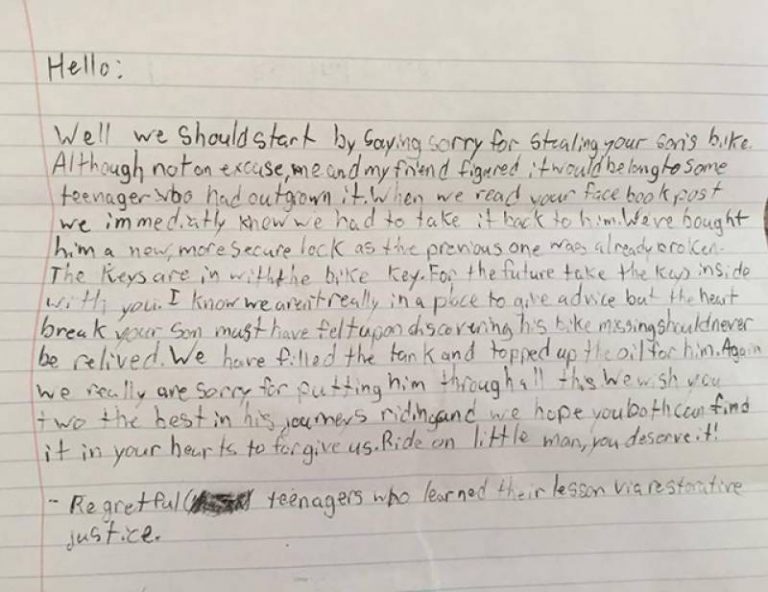 Hello:
Well we should start by saying sorry for stealing your son's bike.
Although not an excuse, me and my friend figured it would belong to some
teenager who had outgrown it. When we read your facebook post
we immediatly know we had to take it back to him. We've bought
him a new, more secure lock as the previous one was already broken.
The keys are in with the bike key. For the future take the keys inside
with you. I know we aren't really in a place to give advice but the heart
break your son must have felt upon discovering his bike missing should never
be relived. We have filled the tank and topped up the oil for him. Again
we really are sorry for putting him through all this. We wish you
two the best in his journeys riding and we hope you both can find
it in your hearts to forgive us. Ride on little man, you deserve it!
- Regretful ( teenagers who learned their lesson via restorative
justice.